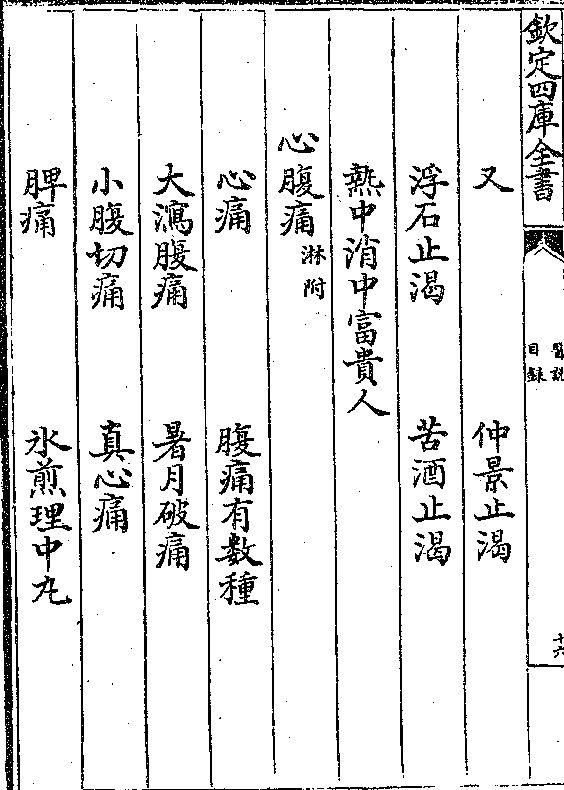 欽定四庫全書
醫説
目録
十六
又 仲景止渴
浮石止渴 苦酒止渴
熱中消中富貴人
心腹痛淋附
心痛 腹痛有数種
大瀉腹痛 暑月破痛
小腹切痛 真心痛
脾痛 氷煎理中丸